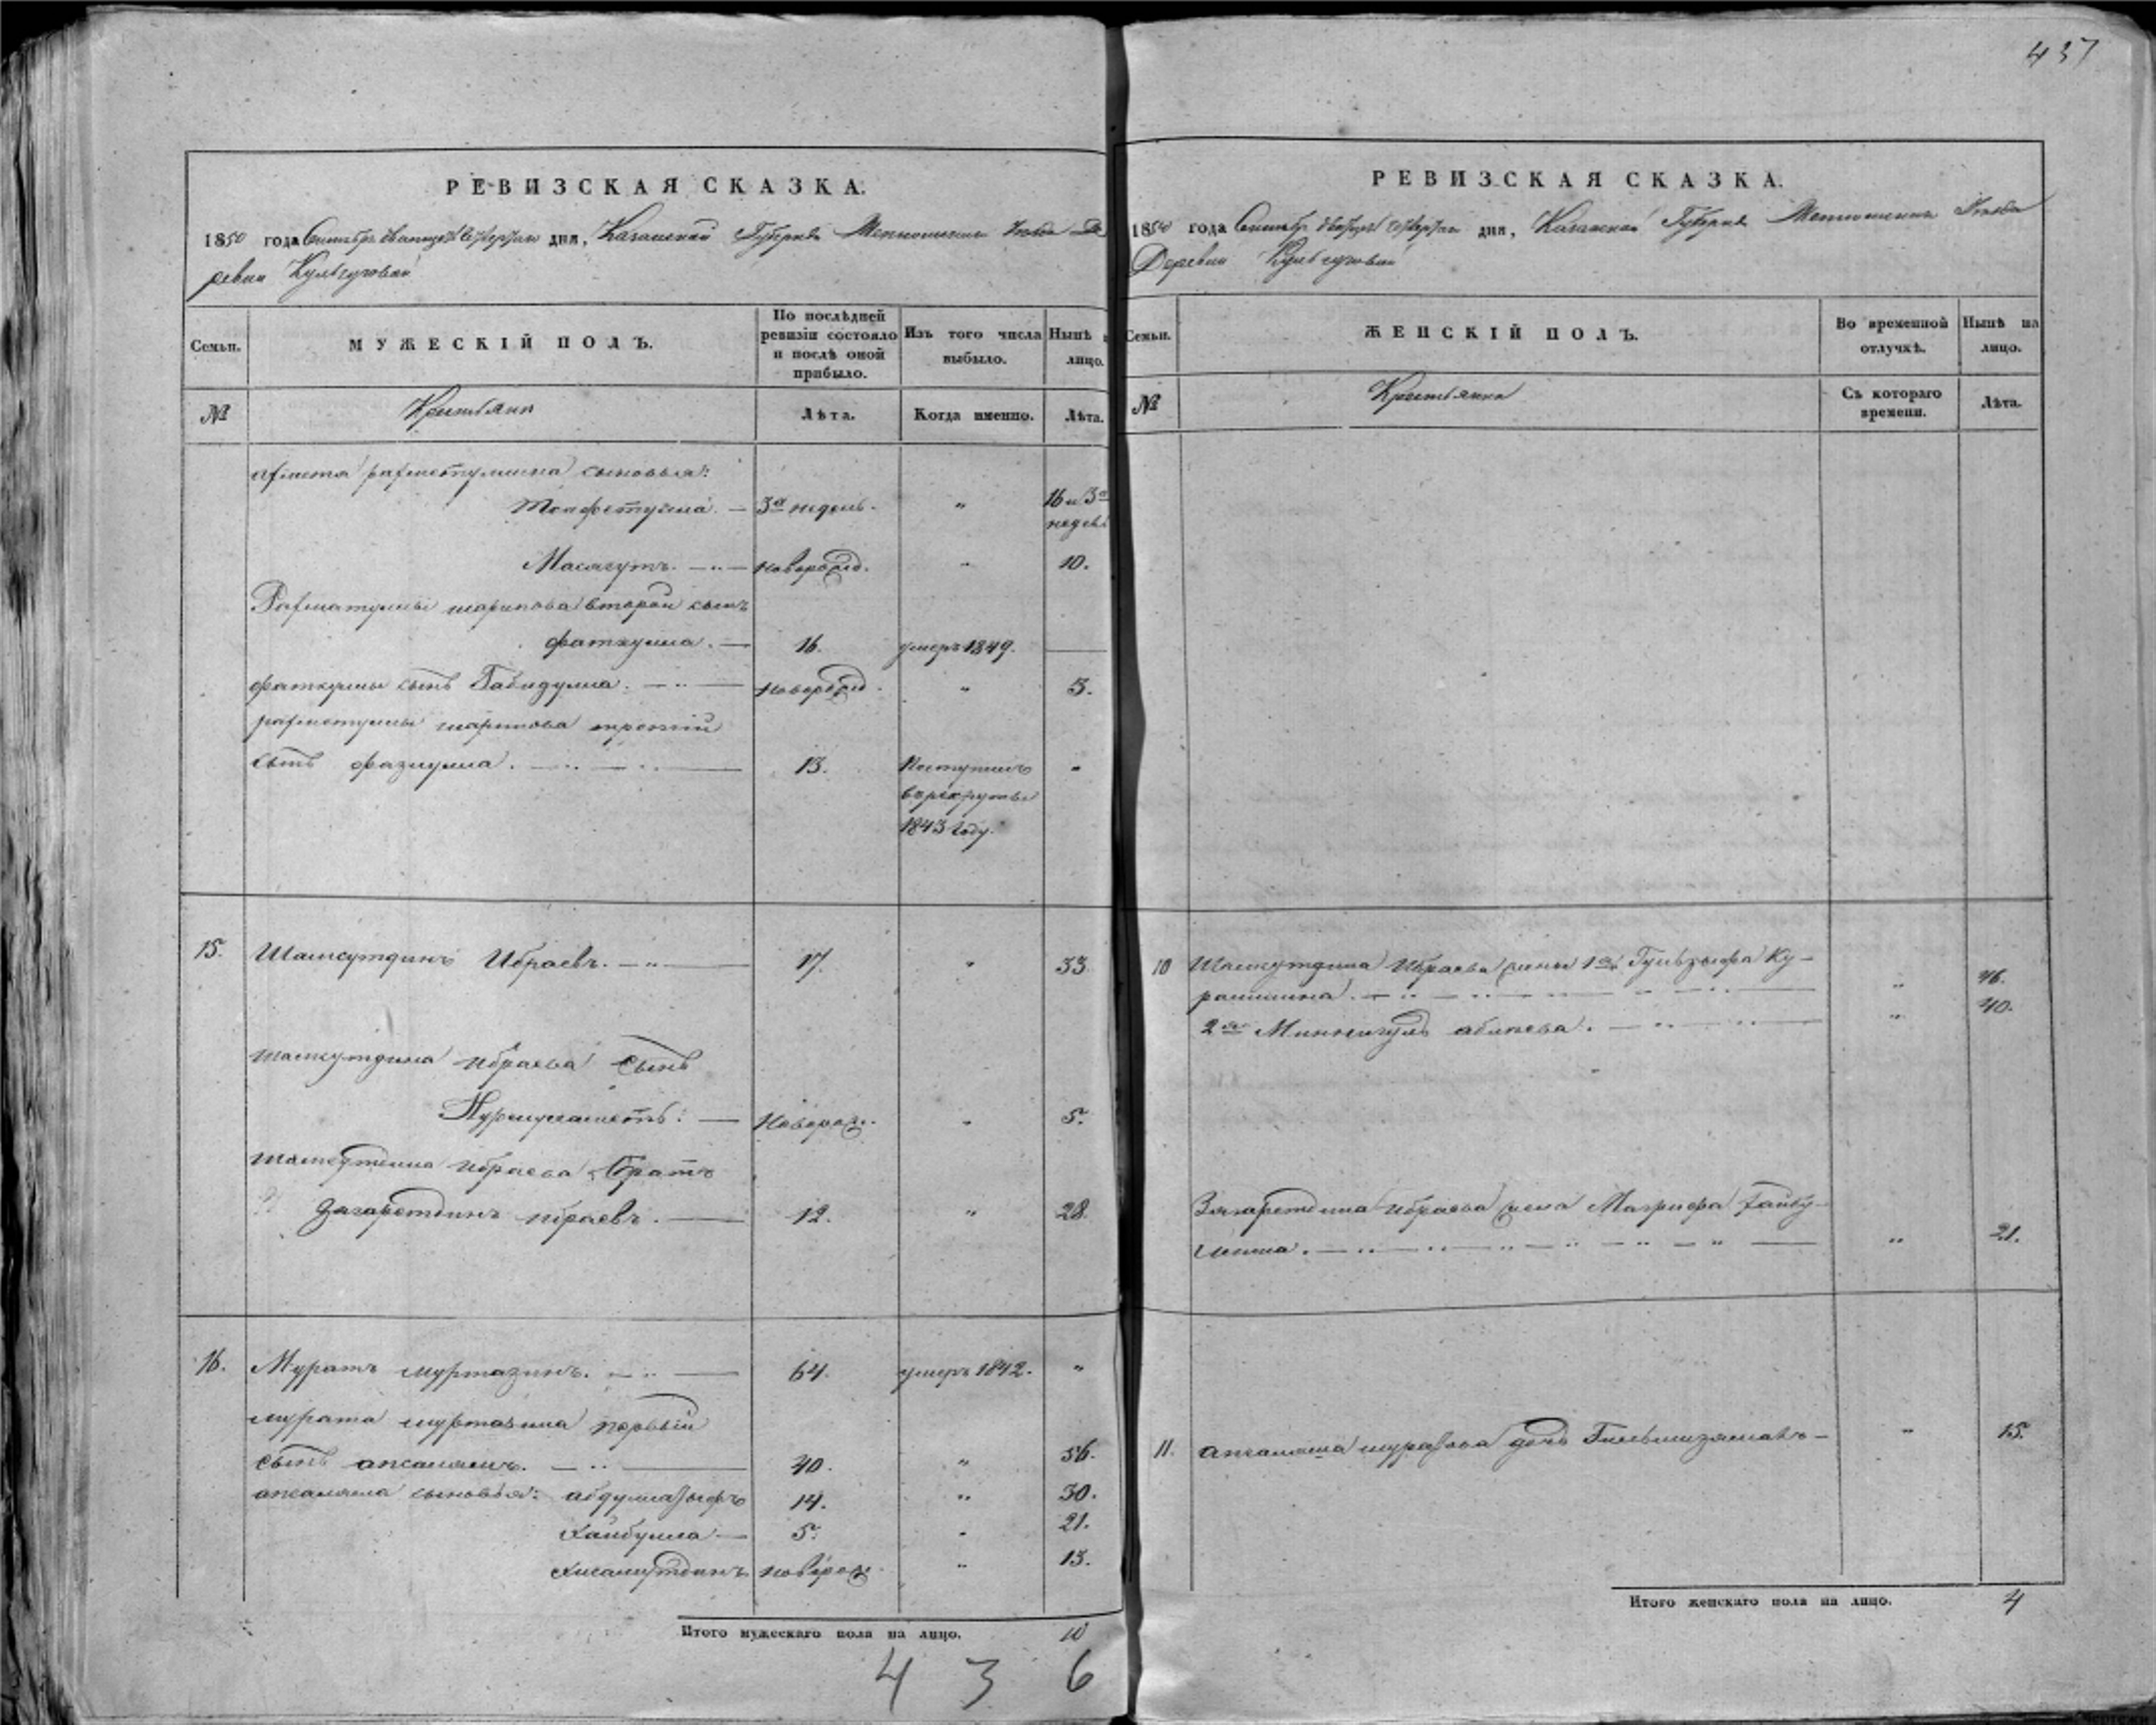 437
РЕВИЗСКАЯ СКАЗКА.
1850 года Сентября двадцать четвертаго дня, Казанской Губерніи Уезда Де
ревни Кульгуговой
Семьи.
МУЖЕСКІЙ ПОЛЪ.
По послѣдней ревизіи состояло и послѣ оной прибыло.
Изъ того числа выбыло.
Нынѣ лицо.
№
Крестьяне
Лѣта.
Когда именно.
Лѣта.
Ахмета рахметуллина сыновья:
3х недель. " 16 и 3х
недель
Масагутъ. — " — новорожд. " 10.
Рахматуллы шарипова второй сынъ
фаткулла. — 16. умеръ 1849. —
фаткуллы сынъ Габидулла. — " — новорожд. " 5.
рахметуллы шарипова третій
сынъ фазлулла. — " — " — 13. Поступилъ "
в рекруты
1843 году.
15. Шамсутдинъ Ибраевъ. — " — 17. " 33
шамсутдина ибраева сынъ
Нурмухаметъ. — новорож. " 5.
шамсутдина ибраева братъ
Загаретдинъ ибраевъ. — 12. " 28.
16. Муратъ муртазинъ. — " — 64. умеръ 1842. "
мурата муртазина первый
сынъ апкалямъ. — " — 40. " 56.
апкаляма сыновья: абдуллатыфъ 14. " 30.
хайбулла — 5. " 21.
хисамутдинъ новорож. " 13.
Итого мужескаго пола на лицо. 10
436
РЕВИЗСКАЯ СКАЗКА.
1850 года Сентября двадцать четвертаго дня, Казанской Губерніи Уезда
Деревни Кульгуговой
Семьи.
ЖЕНСКІЙ ПОЛЪ.
Во временной отлучкѣ.
Нынѣ на лицо.
№
Крестьянки
Съ котораго времени.
Лѣта.
10 Шамсутдина Ибраева жены 1я Гульзыфа Ку-
рашина. — " — " — " 46.
2я Миннигуль абляева. — " — " — " 40.
Загаретдина Ибраева жена Магрифа хайбу-
лина. — " — " — " — " — " — " — " 21.
11. апкаляма муратова дочь — " 15.
Итого женскаго пола на лицо. 4